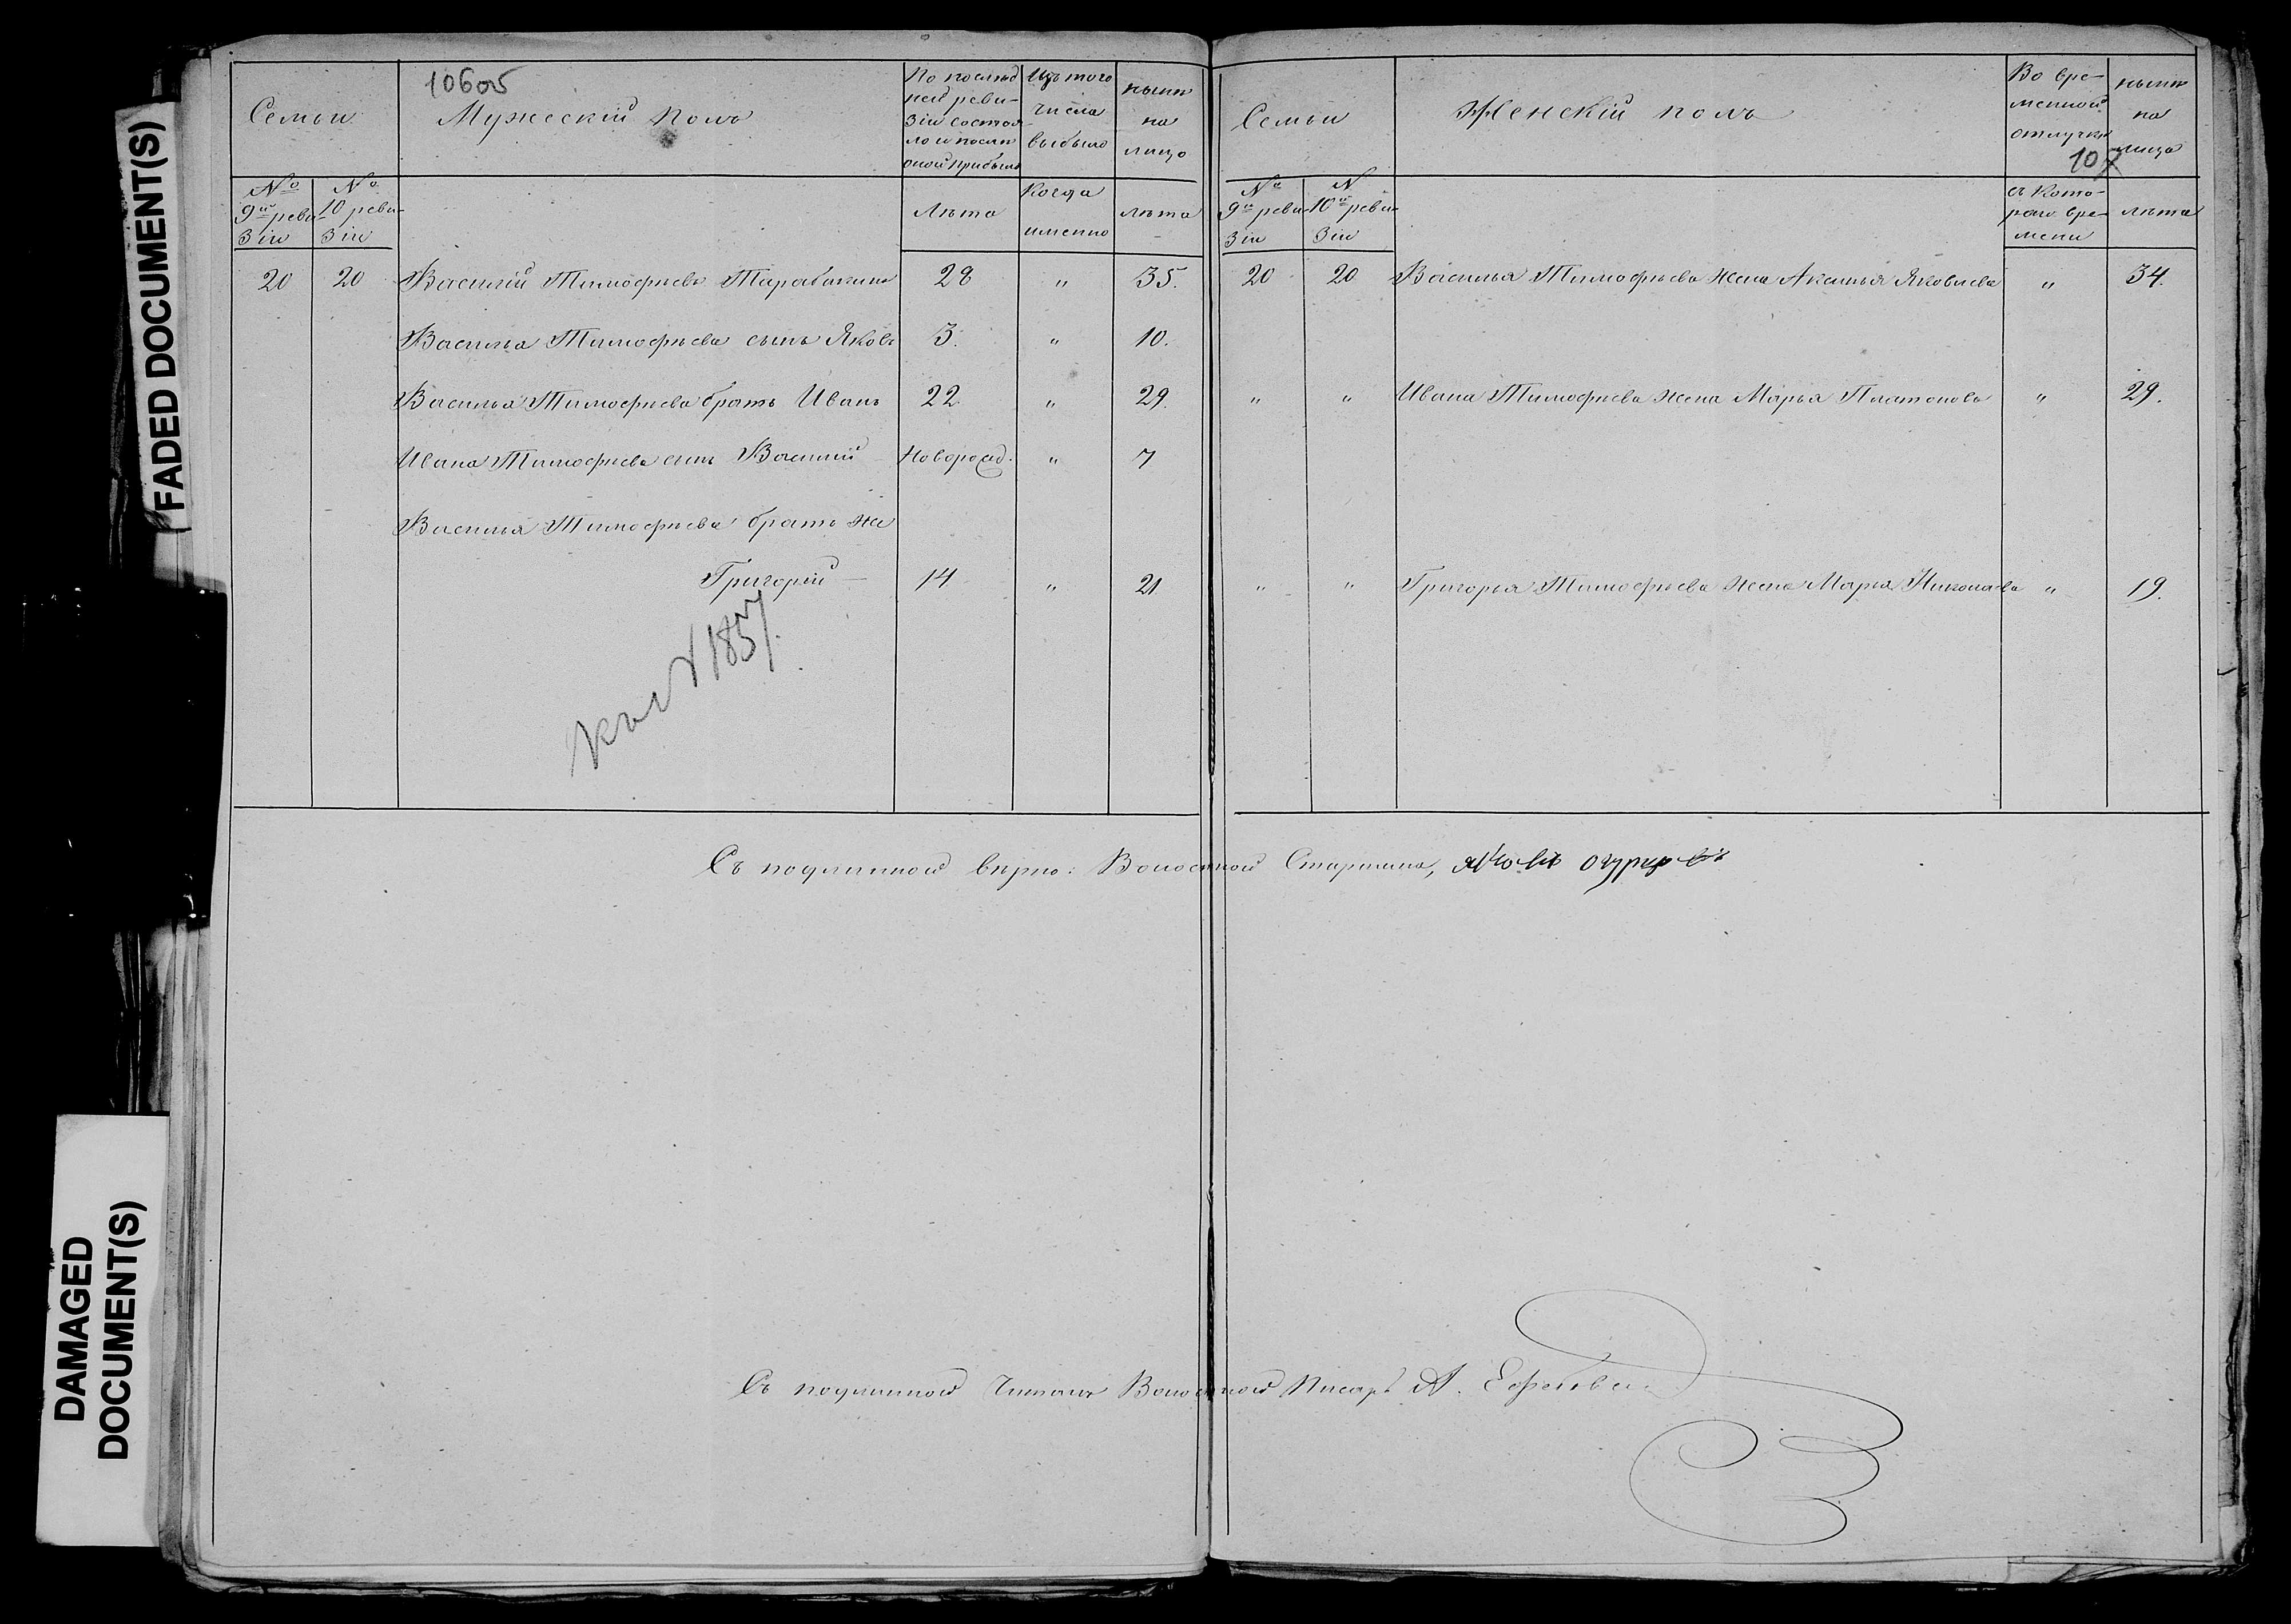 FADED DOCUMENT(S)
DAMAGED
DOCUMENT(S)
106об
Семьи
Мужескій полъ
По послѣд
ней реви-
зіи состоя
ло и послѣ
оной прибыло
Изъ того
числа
выбыло
нынѣ
на
лицо
№ 9й реви-
зіи
№ 10 реви-
зіи
Лѣта
Когда
именно
лѣта
20 20 Василій Тимофѣевъ 28 " 35.
Василья Тимофѣева сынъ Яковъ 3. " 10.
Василья Тимофѣева братъ Иванъ 22. " 29.
Ивана Тимофѣева сынъ Василій Новорожд. " 7
Василья Тимофѣева братъ же
Григорій — 14 " 21
1857.
Семьи
Женскій полъ
Во вре-
менной
отлучкѣ
нынѣ
на
лицо
107
№ 9й реви-
зіи
№ 10й реви-
зіи
съ кото-
раго вре-
мени
лѣта
20 20 Василья Тимофѣева жена Аксинья Яковлева " 34.
" " Ивана Тимофѣева жена Марья Платонова " 29.
" " Григорья Тимофѣева жена Марья Николаева " 19.
Съ подлинной вѣрно: Волостной Старшина,
Съ подлинной читалъ Волостной Писарь А.